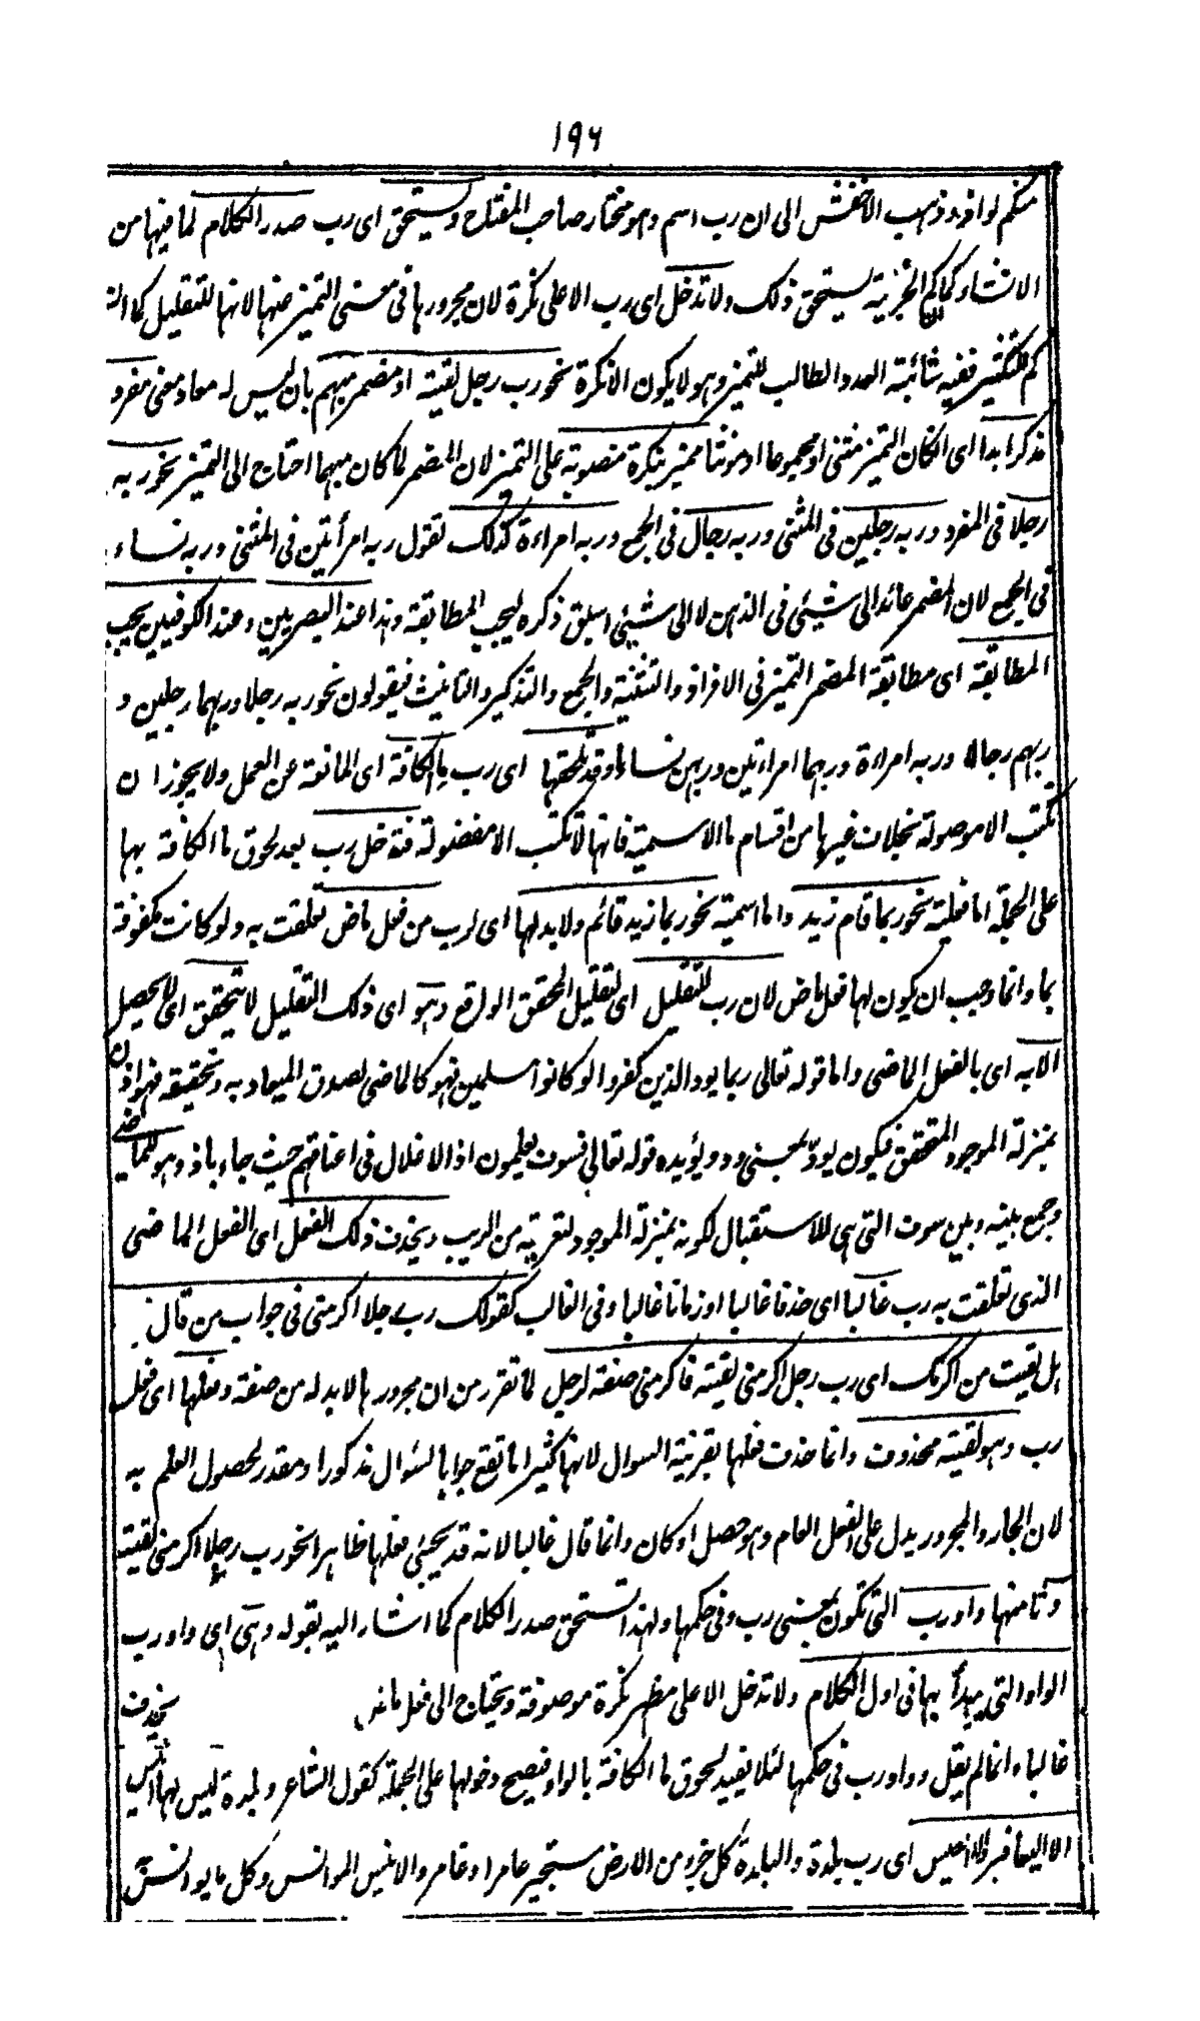 ١٩٦
منكم لواذا وذهب الاخفش الى ان رب اسم وهو مختار صاحب المفتاح ويستحق اى رب صدر الكلام لما فيها من
الانشاء كما كم الخبرية يستحق ذلك ولا تدخل اى رب الا على نكرة لان مجرورها فى معنى التميز عنها لانها للتقليل كما ان
كم للتكثير ففيه شائبة العدد الطالب للتميز وهو لا يكون الا نكرة نحو رب رجل لقيته او مضمر مبهم بان ليس له معاد معنى مفرد
مذكر ابدا اى انكان التميز مثنى او مجموعا او مؤنثا مميز بنكرة منصوبة على التميز لان المضمر لما كان مبهما احتاج الى التميز نحو ربه
رجلا فى المفرد وربه رجلين فى المثنى وربه رجال فى الجمع وربه امراءة كذلك تقول ربه امرأتين فى المثنى وربه نساء
فى الجمع لان المضمر عائد الى شيئى فى الذهن لا الى شيئى سبق ذكره ليجب المطابقة وهذا عند البصريين وعند الكوفيين يجب
المطابقة اى مطابقة المضمر التميز فى الافراد والتثنية والجمع والتذكير والتانيث فيقولون نحو ربه رجلا وربهما رجلين و
ربهم رجالا وربه امراءة وربهما امراءتين وربهن نساءا وقد تلحقها اى رب ما الكافة اى المانعة عن العمل ولا يجوز ان
تكتب الا موصولة بخلاف غيرها من اقسام ما الاسمية فانها لا تكتب الا مفصولة فتدخل رب بعد لحوق ما الكافة بها
على الجملة اما فعلية نحو ربما قام زيد واما اسمية نحو ربما زيد قائم ولا بد لها اى لرب من فعل ماض تعلقت به ولو كانت مكفوفة
بما وانما وجب ان يكون لها فعل ماض لان رب للتقليل اى لتقليل المحقق الواقع وهو اى ذلك التقليل لا يتحقق اى لا يحصل
الا به اى بالفعل الماضى واما قوله تعالى ربما يود الذين كفروا لو كانوا مسلمين فهو كالماضى لصدق الميعاد به وتحقيقه فهو اذن
بمنزلة الموجود المتحقق فيكون يودّ بمعنى ود ويؤيده قوله تعالى فسوف يعلمون اذ الاغلال فى اعناقهم حيث جاء باذ وهو للماضى
وجمع بينه وبين سوف التى هى للاستقبال لكونه بمنزلة الموجود لتعريه من الريب ويحذف ذلك الفعل اى الفعل الماضى
الذى تعلقت به رب غالبا اى حذفا غالبا او زمانا غالبا وفى الغالب كقولك رب رجلا اكرمنى فى جواب من قال
هل لقيت من اكرمك اى رب رجل اكرمنى لقيته فاكرمنى صفة لرجل لما تقرر من ان مجرورها لا بد له من صفة وفعلها اى فعل
رب وهو لقيته محذوف وانما حذف فعلها بقرينة السوال لانها كثيرا ما تقع جوابا لسؤال مذكور او مقدر لحصول العلم به
لان الجار والمجرور يدل على الفعل العام وهو حصل او كان وانما قال غالبا لانه قد يجيئى فعلها ظاهرا نحو رب رجلا اكرمنى لقيته
وثامنها واو رب التى تكون بمعنى رب وفى حكمها ولهذا تستحق صدر الكلام كما اشار اليه بقوله وهى اى واو رب
الواو التى يبدأ بها فى اول الكلام ولا تدخل الا على مظهر نكرة موصوفة ويحتاج الى فعل ماض يحذف
غالباء انما لم يقل وواو رب فى حكمها لئلا يفيد لحوق ما الكافة بالواو فيصح دخولها على الجملة كقول الشاعر وبلدة ليس لها انيس
الا اليعافير والا العيس اى رب بلدة والبلدة كل جزء من الارض مستحيز عامر او غامر والانيس الموانس وكل ما يوانس